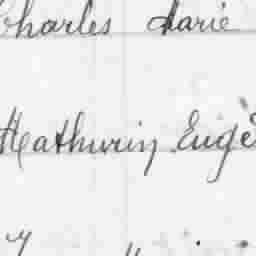 Charles Marie
Mathurin Eugè